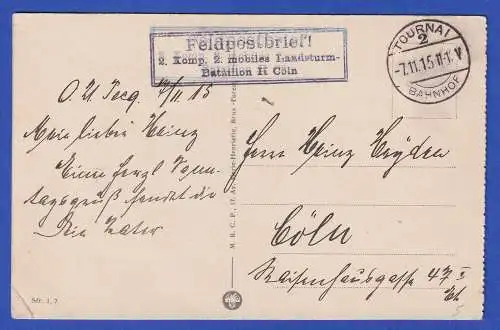 Feldpostbrief!
2. Komp. 2. mobiles Landsturm-
Bataillon II Cöln
TOURNAI
2
-7.11.15. 11-12 V
BAHNHOF
O. U. 7/11 15
Mein lieber Heinz
Einen herzl Sonn-
tagsgruß sendet dir
Dein Vater
Herrn Heinz Heyden
Cöln
Waisenhausgasse 47 I
Sér. 1, 7